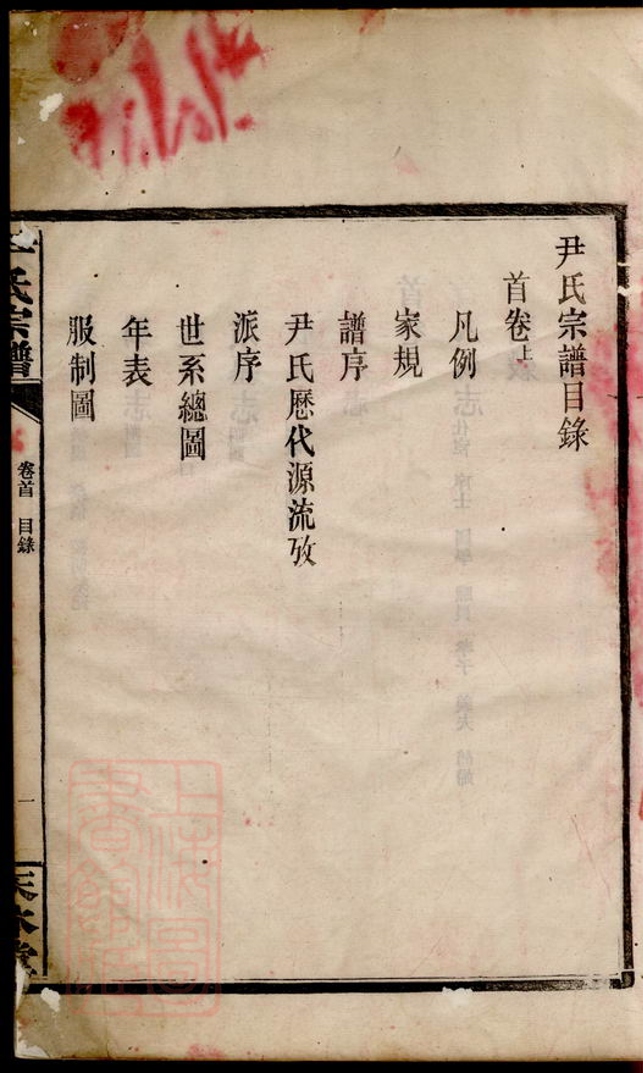 尹氏宗譜目錄
首卷上
凡例
家規
譜序
尹氏歷代源流攷
派序
世系總圖
年表
服制圖
尹氏宗譜
卷首 目錄
一
天水堂
上海圖書館藏